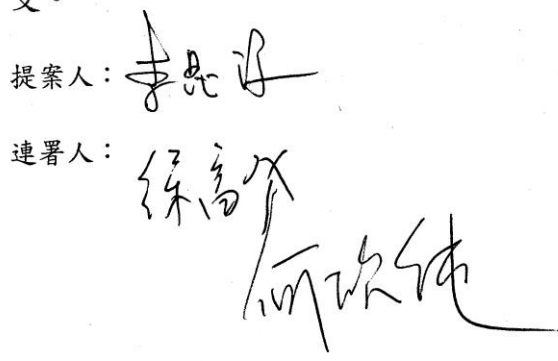 提案人：李昆澤
連署人：
何欣純